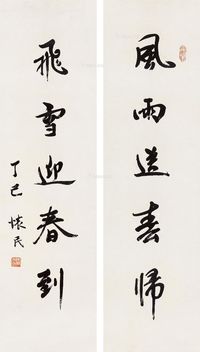 風雨送春歸
飛雪迎春到
丁巳 懷民